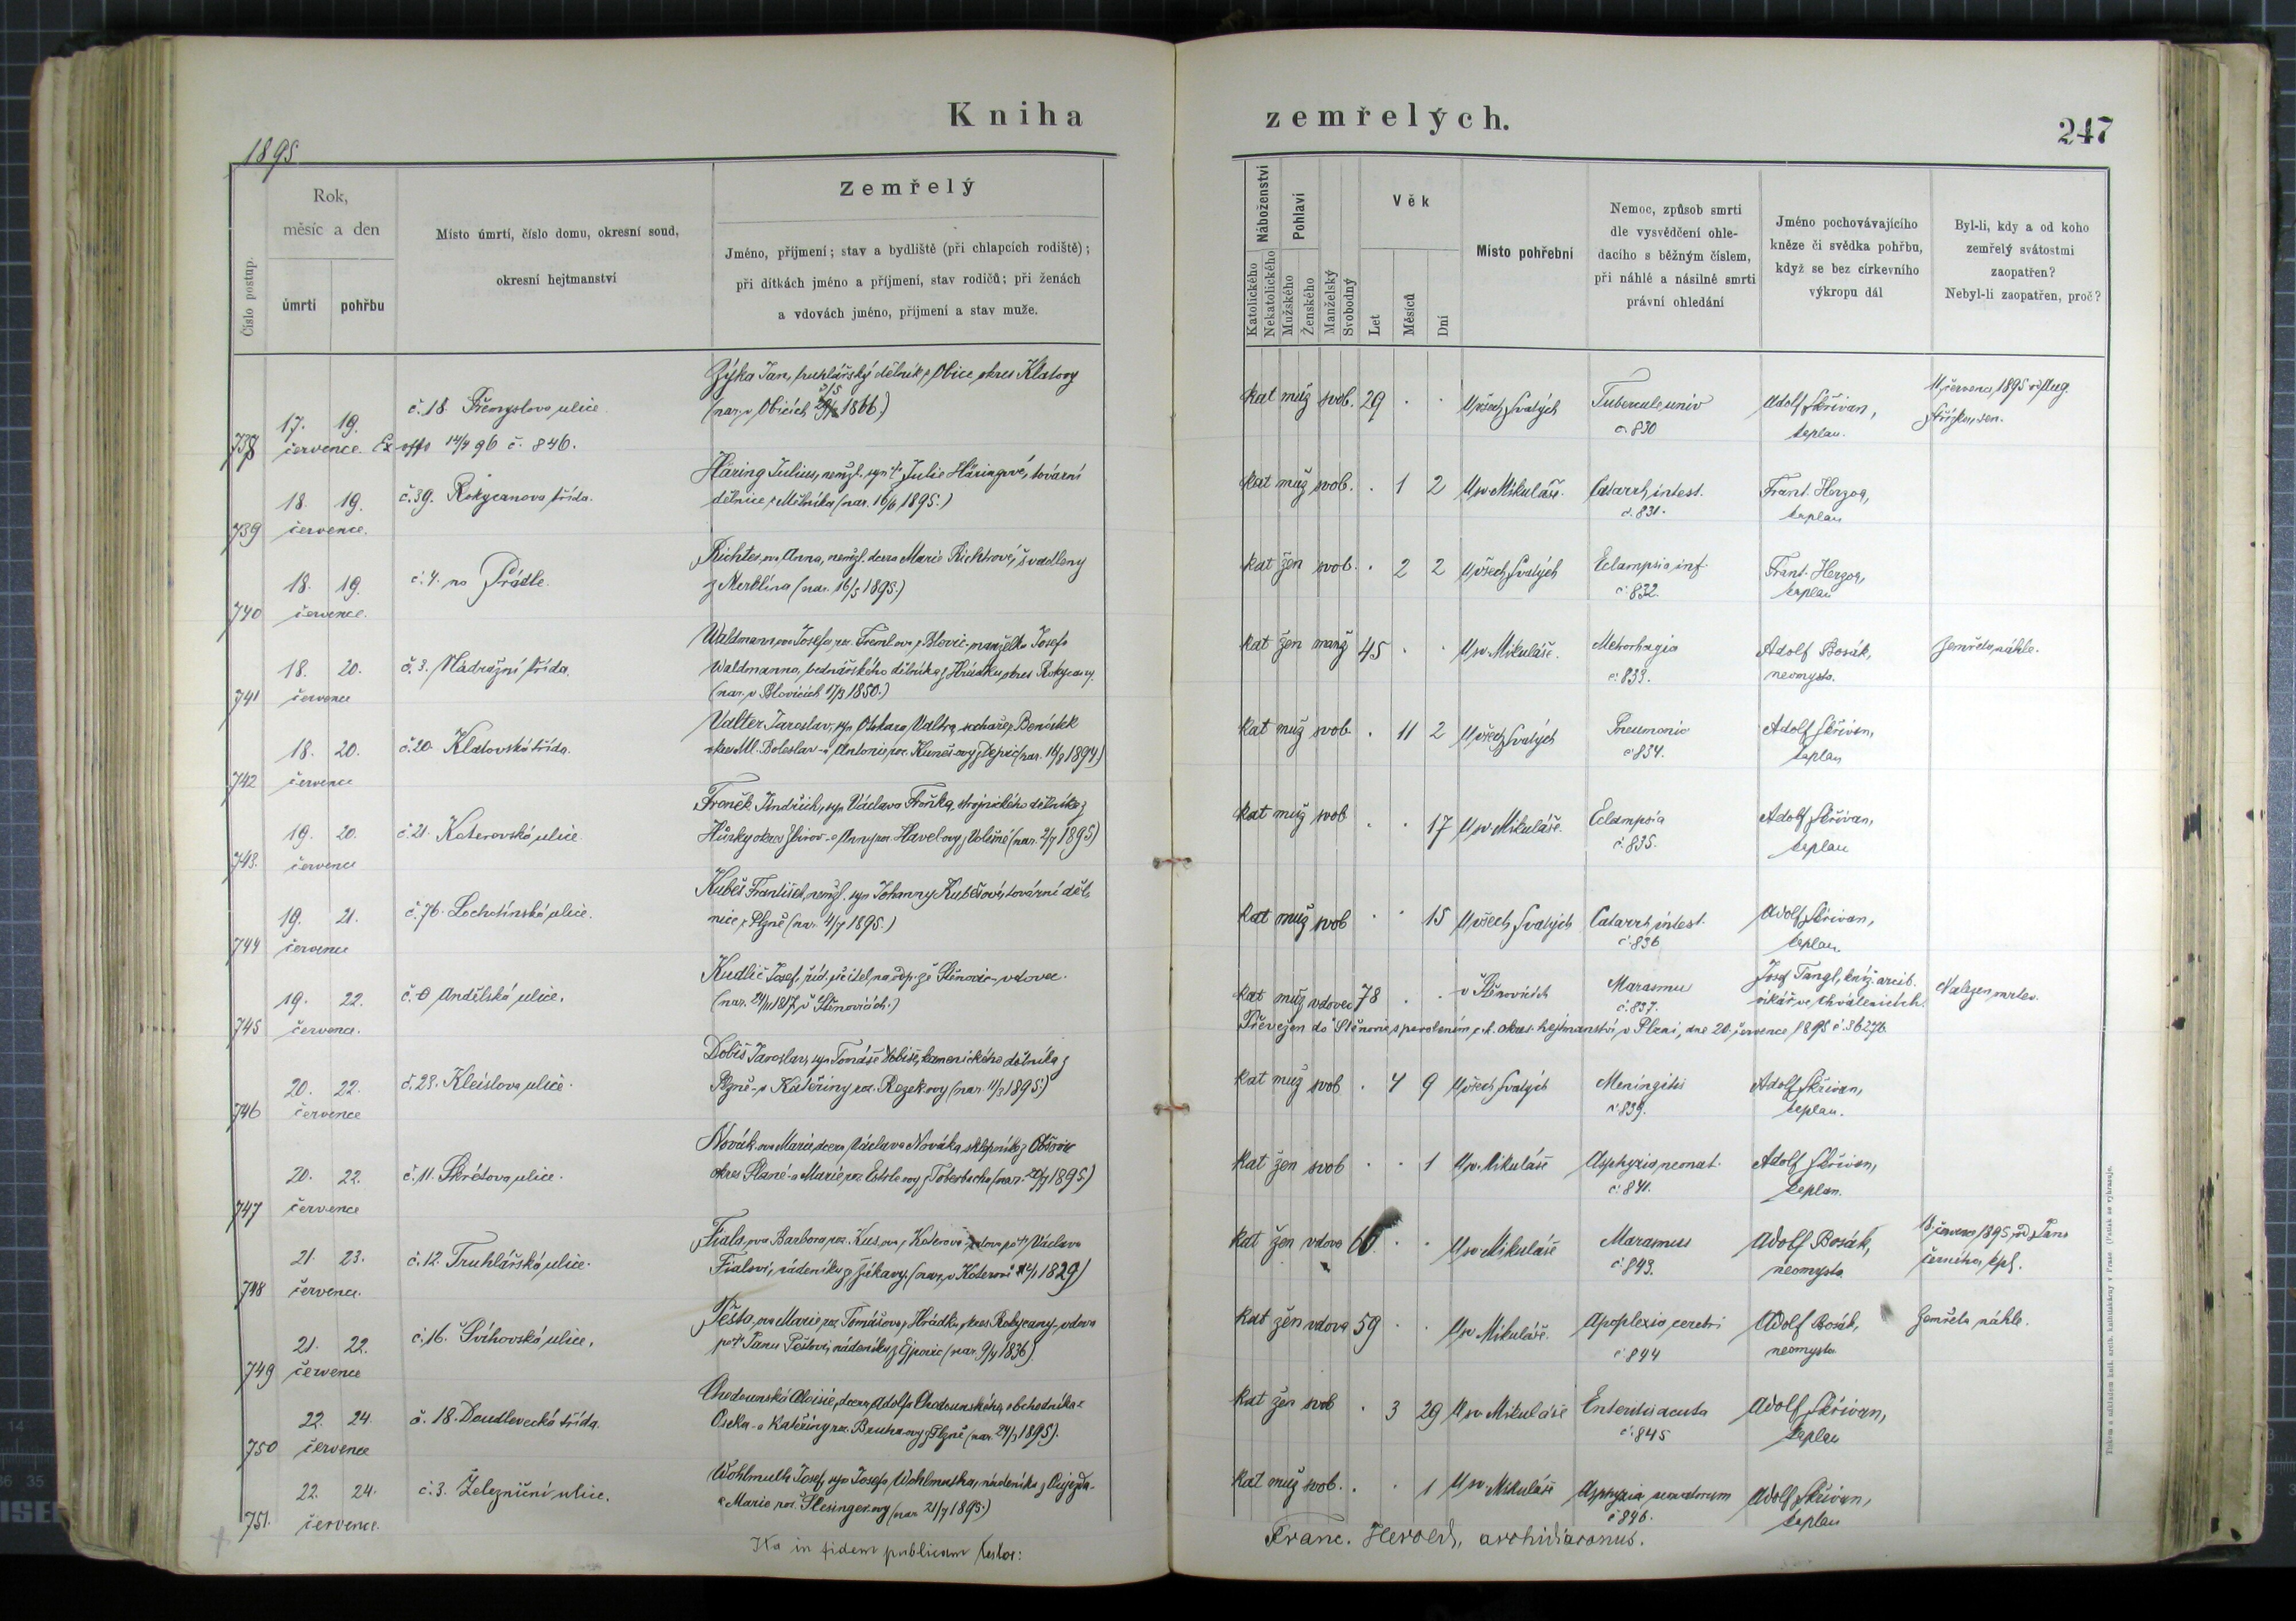 Kniha zemřelých.
247
1895
Číslo postup.
Rok,
měsíc a den
úmrtí
pohřbu
Místo úmrtí, číslo domu, okresní soud,
okresní hejtmanství
Zemřelý
Jméno, příjmení; stav a bydliště (při chlapcích rodiště);
při dítkách jméno a příjmení, stav rodičů; při ženách
a vdovách jméno, příjmení a stav muže.
Náboženství
Katolického
Nekatolického
Pohlaví
Mužského
Ženského
Manželský
Svobodný
Věk
Let
Měsíců
Dní
Místo pohřební
Nemoc, způsob smrti
dle vysvědčení ohle-
dacího s běžným číslem,
při náhlé a násilné smrti
právní ohledání
Jméno pochovávajícího
kněze či svědka pohřbu,
když se bez církevního
výkropu dál
Byl-li, kdy a od koho
zemřelý svátostmi
zaopatřen?
Nebyl-li zaopatřen, proč?
738
17. 19.
července
č. 18. Přemyslova ulice
Ex offo 14/4 96 č. 846.
Zýka Jan, truhlářský dělník z Obice okres Klatovy
(nar. v Obicích 1866.)
kat muž svob. 29 . .
U všech Svatých
č. 830
Adolf Skřivan,
kaplan.
11. července 1895
739
18. 19.
července.
č. 39. Rokycanova třída.
Häring Julius, nemžl. syn Julie Häringové, tovární
dělnice z Mělníka (nar. 16/6 1895.)
kat muž svob. . 1 2
U sv. Mikuláše.
Catarrh. intest.
č. 831.
Frant. Herzog,
kaplan
740
18. 19.
července.
č. 4. na Prádle.
Richter, ova Anna, nemžl. dcera Marie Richtrové, švadleny
z Merklína (nar. 16/5 1895.)
kat žen svob. . 2 2
U všech Svatých
Eclampsia inf.
č. 832.
Frant. Herzog,
kaplan
741
18. 20.
července
č. 3. Nádražní třída.
Waldmann, ova Josefa, roz. z Blovic, manželka Josefa
Waldmanna, bednářského dělníka z Hrádku, okres Rokycany.
(nar. v Blovicích 17/3 1850.)
kat žen manž 45 . .
U sv. Mikuláše.
Metrorhagia
č. 833.
Adolf Bosák,
neomysta.
Zemřela náhle.
742
18. 20.
července
č. 20. Klatovská třída.
Valter Jaroslav, syn Otokara Valtra, sochaře z Benátek
okres Ml. Boleslav a Antonie, roz. Kuneš-ovy (nar. 16/8 1894)
kat muž svob. . 11 2
U všech Svatých
Pneumonia
č. 834.
Adolf Skřivan,
kaplan
743.
19. 20.
července
č. 21. Koterovská ulice.
Froněk Jindřich, syn Václava Froňka, strojnického dělníka z
Hůrky okres Zbirov a Anny roz. Havel-ovy z Volešné (nar. 2/7 1895)
kat muž svob . . 17
U sv. Mikuláše.
Eclampsia
č. 835.
Adolf Skřivan,
kaplan
744
19. 21.
července
č. 76. Lochotínská ulice.
Kubeš František, nemžl. syn Johanny Kubešové, tovární děl-
nice z Plzně (nar. 4/7 1895.)
kat muž svob . . 15
U všech Svatých
Catarrh. intest.
č. 836
Adolf Skřivan,
kaplan.
745
19. 22.
července.
č. 8 Andělská ulice.
Kudlič Josef, říd. učitel na odp. ze Štěnovic - vdovec.
(nar. 24/11 1817, v Štěnovicích.)
kat muž vdovec 78 . .
v Štěnovicích
Marasmus
č. 837.
Josef Tangl, kníž. arcib.
vikář ve Chválenicích.
Nalezen mrtev.
Převežen do Štěnovic s povolením c. k. okres. hejtmanství v Plzni, dne 20. července 1895 č. 36276.
746
20. 22.
července
č. 23. Kleislova ulice.
Dobiš Jaroslav, syn Tomáše Dobiše, kamenického dělníka z
Plzně a Kateřiny roz. Rezek-ovy (nar. 11/3 1895)
kat muž svob . 4 9
U všech Svatých
Meningitis
č. 839.
Adolf Skřivan,
kaplan.
747
20. 22.
července
č. 11. Škrétova ulice.
Novák-ova Marie, dcera Václava Nováka, sklepníka z
okres Planá a Marie, roz. (nar. 20/7 1895)
kat žen svob . . 1
U sv. Mikuláše
Asphyxia neonat.
č. 841.
Adolf Skřivan,
kaplan.
748
21. 23.
července.
č. 12. Truhlářská ulice.
Fiala, ova Barbora, roz. Kus, ova z Koterova, vdova po † Václavu
Fialovi, nádeníku z Žákavy. (nar. v Koterově 1829)
kat žen vdova 66 . .
U sv. Mikuláše
Marasmus
č. 843.
Adolf Bosák,
neomysta.
18. července 1895, od Jana
Černého, kpl.
749
21. 22.
července
č. 16. Švihovská ulice.
Pešta, ova Marie, roz. Tomášova z Hrádku, okres Rokycany, vdova
po † Janu Peštovi, nádeníku z Ejpovic (nar. 9/4 1836).
kat žen vdova 59 . .
U sv. Mikuláše.
Apoplexia cerebri
č. 844
Adolf Bosák,
neomysta.
Zemřela náhle.
750
22. 24.
července
č. 18. Doudlevecká třída.
Chodounská Aloisie, dcera Adolfa Chodounského, obchodníka z
Oseka a Kateřiny roz. z Plzně (nar. 24/3 1895).
kat žen svob . 3 29
U sv. Mikuláše
Enteritis acuta
č. 845
Adolf Skřivan,
kaplan
751.
22. 24.
července.
č. 3. Železniční ulice.
Wohlmuth Josef, syn Josefa Wohlmutha, nádeníka z Oujezda
a Marie roz. Slesinger-ovy (nar. 21/7 1895.)
kat muž svob. . . 1
U sv. Mikuláše
Asphyxia neonatorum
č. 846.
Adolf Skřivan,
kaplan
Ita in fidem publicam testor:
Franc. Herold, archidiaconus.